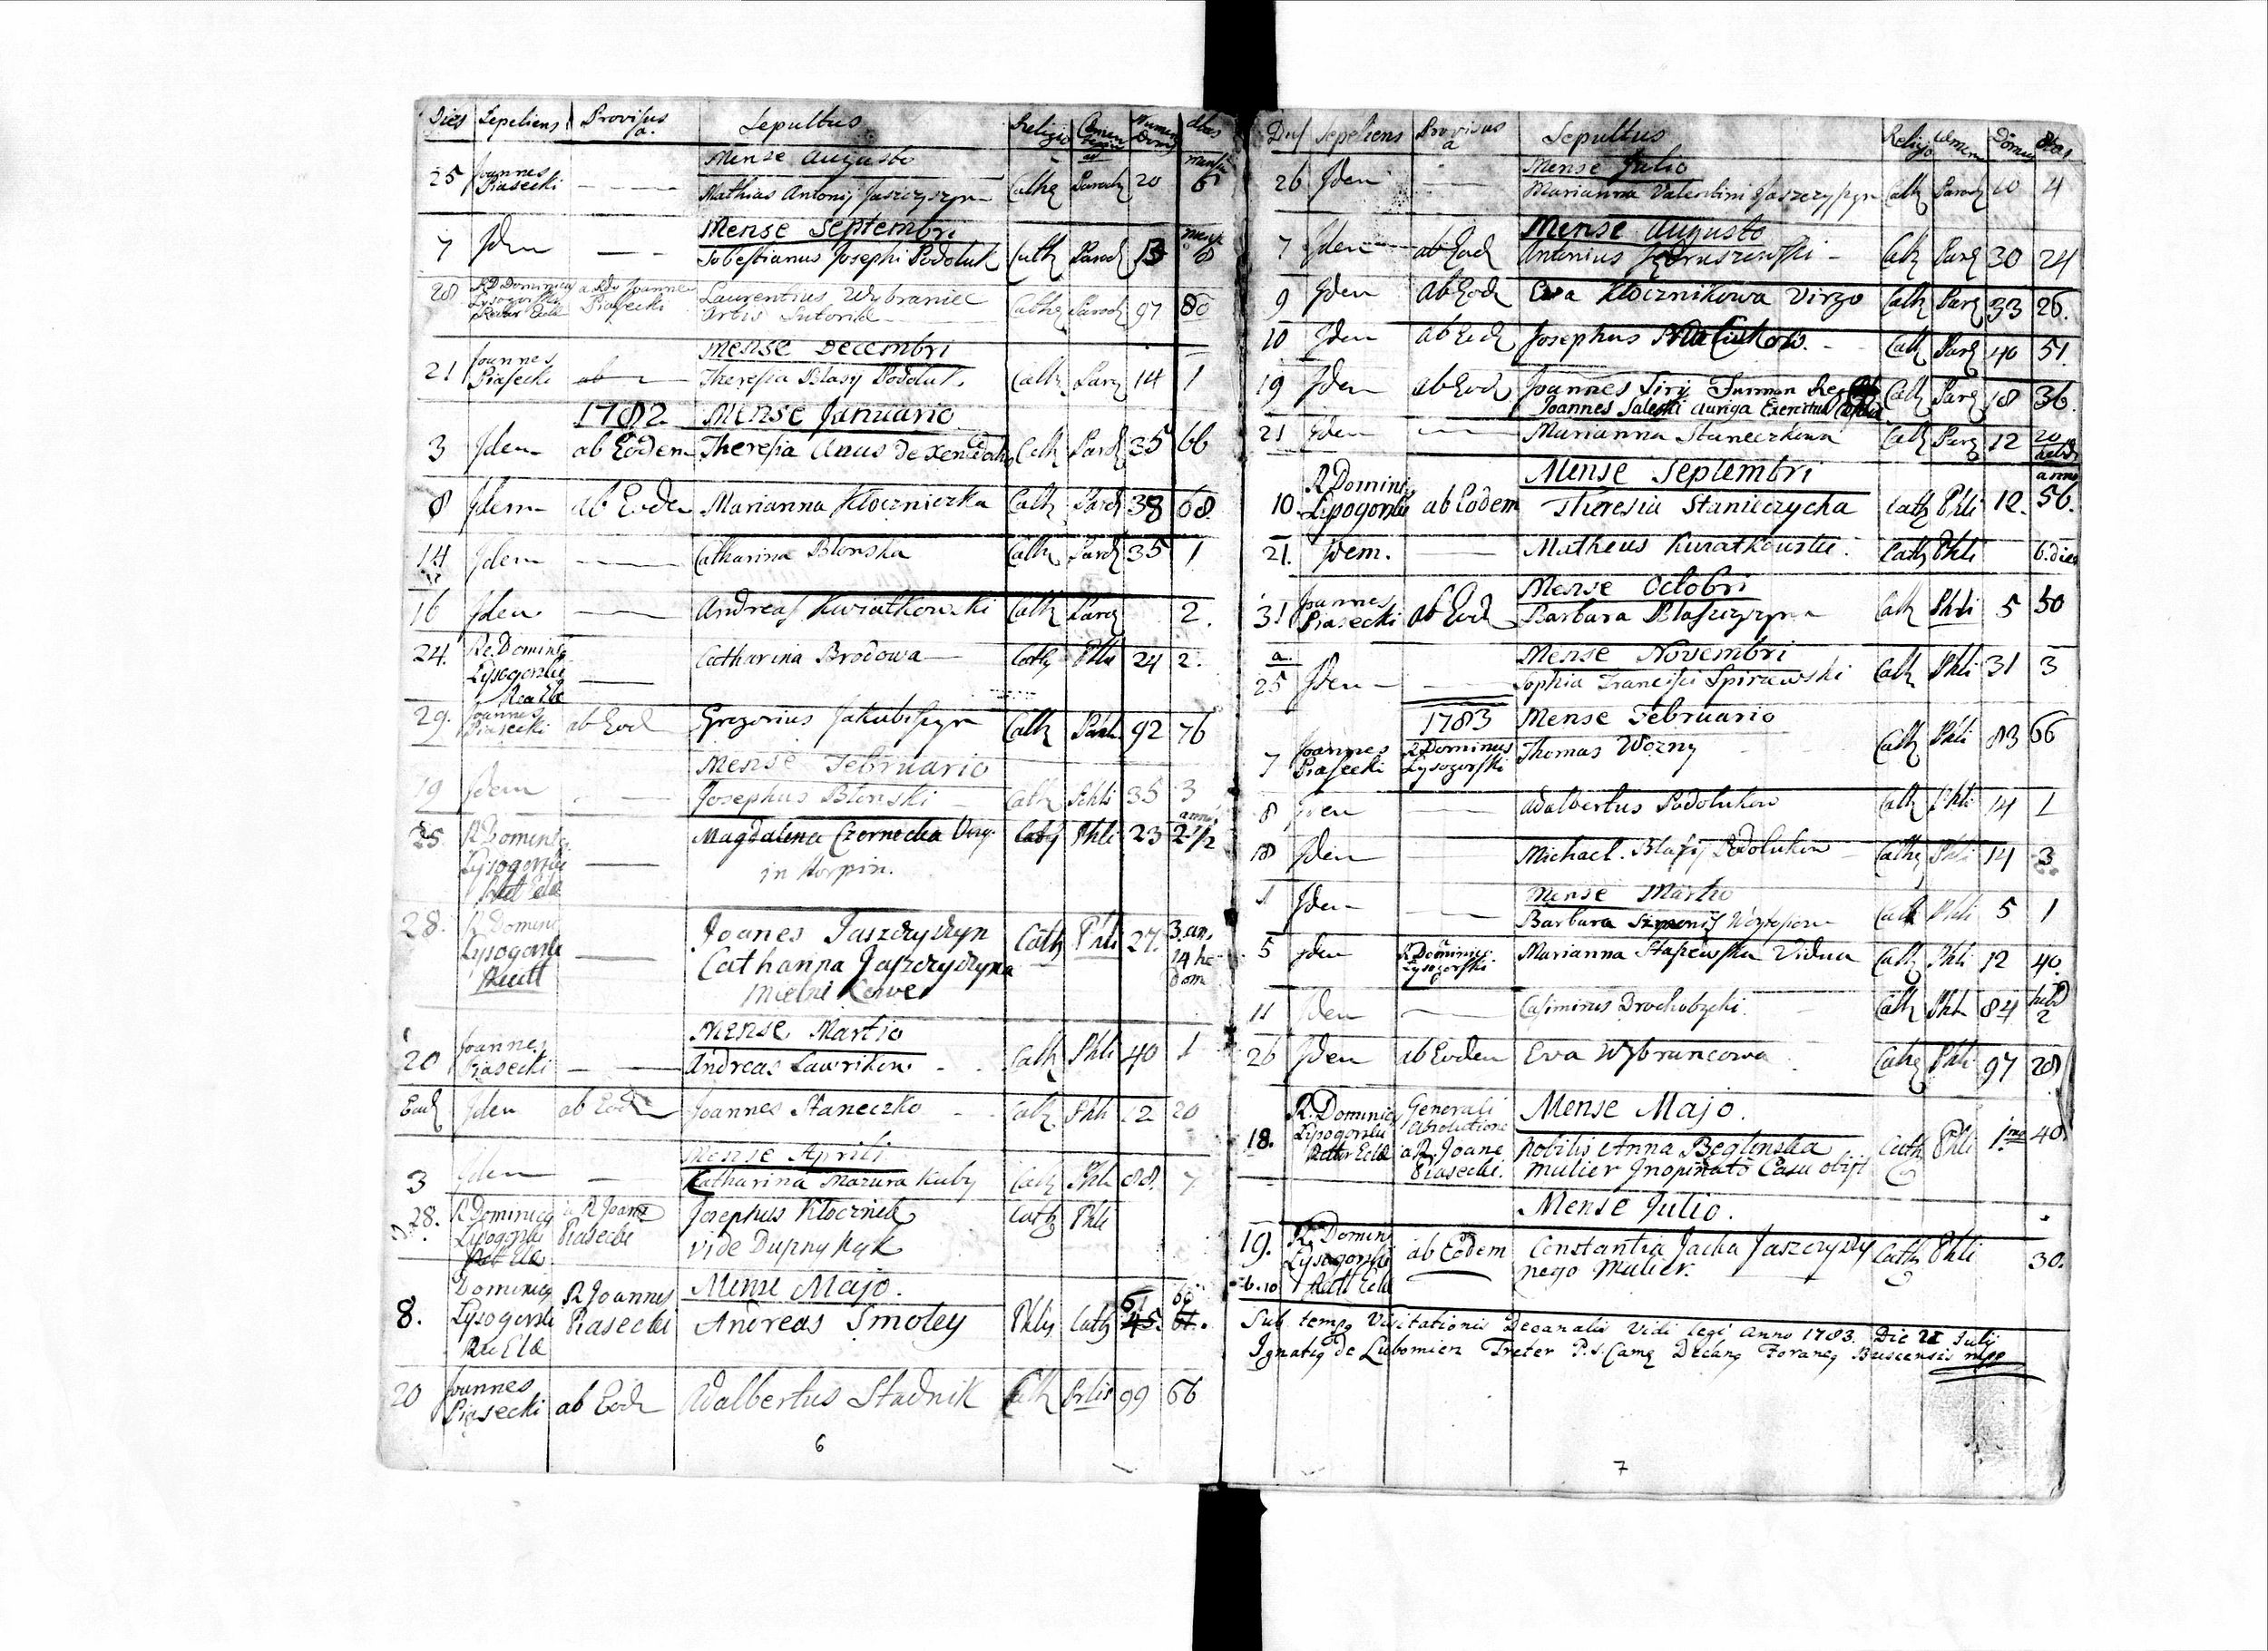 Dies Sepeliens Provisus a. Sepultus Religio Numerus Domus
Mense Augusto
25 Joannes Piasecki Mathias Antonij Jaszczyszyn Cath Paroch 20 6
Mense Septembri
7 Jdem Sobestianus Josephi Podoluk Cath Paroch 13 8
28 R D Dominicus Lysogorski a Rdo Joanne Piasecki Laurentius Wybraniec Cathc Paroch 97 80
Artis Sutoriae
Mense Decembri
21 Joannes Piasecki Theresia Blasij Podoluk Cath Parc 14 1
1782. Mense Januario
3 Jdem ab Eodem Theresia Anus de Cath Paroc 35 66
8 Jdem ab Eodem Marianna Kłoczniczka Cath Paroc 38 68.
14 Jdem Catharina Blonska Cath Paroc 35 1
16 Jdem Andreas Kwiatkowski Cath Paroc 2.
24. Re. Dominicus Lysogorski Catharina Brodowa Cath Phli 24 2.
29. Joannes Piasecki ab Eod Gregorius Jakubiszyn Cath 92 76
Mense Februario
19 Jdem Josephus Blonski Cath Phli 35 3
25. R Dominicus Lysogorski Magdalena Czernecka Virg. Cath Phli 23 2 1/2
in Korpin.
28. R Dominicus Lysogorski Joanes Jaszczyszyn Cath Phli 27. 3. an.
Catharina Jaszczyszyna 14 hebdom
Mense Martio
20 Joannes Piasecki Andreas Lawrikow Cath Phli 40 1
Ead Jdem ab Eod Joannes Staneczko Cath Phli 12 20
Mense Aprili
3 Jdem Catharina Mazura Kuby Cath Phli 88. 7
28. R Dominicus Lysogorski a R Joane Piasecki Josephus Kłocznik Cath Phli
vide
Mense Majo.
8. Dominicus Lysogorski R Joannes Piasecki Andreas Smoley Phli Cath
20 Joannes Piasecki ab Eod Adalbertus Stadnik Cath 99 66
6
Sepeliens Provisus a Sepultus Religio Domus
Mense Julio
26 Jdem Marianna Valentini Jaszczyszyn Cath Paroc 10 4
Mense Augusto
7 Jdem ab Eod Antonius Jędruszewski Cath Parc 30 24
9 Jdem Ab Eod Eva Kłocznikowa Virgo Cath Parc 33 26.
10 Jdem ab Eod Josephus Cath Parc 40 51
19 Jdem ab Eod Joannes Cath Parc 18 36.
Joannes Saleski Auriga Exercitus
21 Jdem Marianna Staneczkowa Cath Parc 12 20
Mense Septembri
10. R Dominicus Lysogorski ab Eodem Theresia Stanieczycha Cath Phli 12. 56.
21. Jdem. Matheus Kuratkouski Cath Phli 6. dies
Mense Octobri
31 Joannes Piasecki ab Eod Barbara Błaszczyszyna Cath Phli 5 50
Mense Novembri
25 Jdem Sophia Francisci Spirzewski Cath Phli 31 3
1783 Mense Februario
7 Joannes Piasecki R Dominus Lysogorski Thomas Wozny Cath Phli 83 66
8 Jdem Adalbertus Podolukow Cath Phli 14 1
18 Jdem Michael. Blasij Podolukow Cathc Phli 14 3
Mense Martio
1 Jdem Barbara Cath Phli 5 1
5 Jdem R Dominicus Lysogorski Marianna Vidua Cath Phli 12 40.
11 Jdem Casimirus Drochobycki Cath Phli 84 hebd 2
26 Jdem ab Eodem Eva Wybrancowa Cathc Phli 97 28
Mense Majo.
18. R. Dominicus Lysogorski Generali Absolutione a R. Joane Piasecki. Nobilis Anna Beglinska Cath Phli 1mo 40
Mulier Jnopinato Casu obijt
Mense Julio.
19. R. Dominicus Lysogorski ab Eodem Constantia Jacka Jaszczyszynego Mulier. Cath Phli 30.
Sub tempq Visitationis Decanalis Vidi legi Anno 1783. Die 21 Julij
Ignatiq de Lubomierz Treter P. s. Camq Decanq Foraneq Buscensis mpp
7